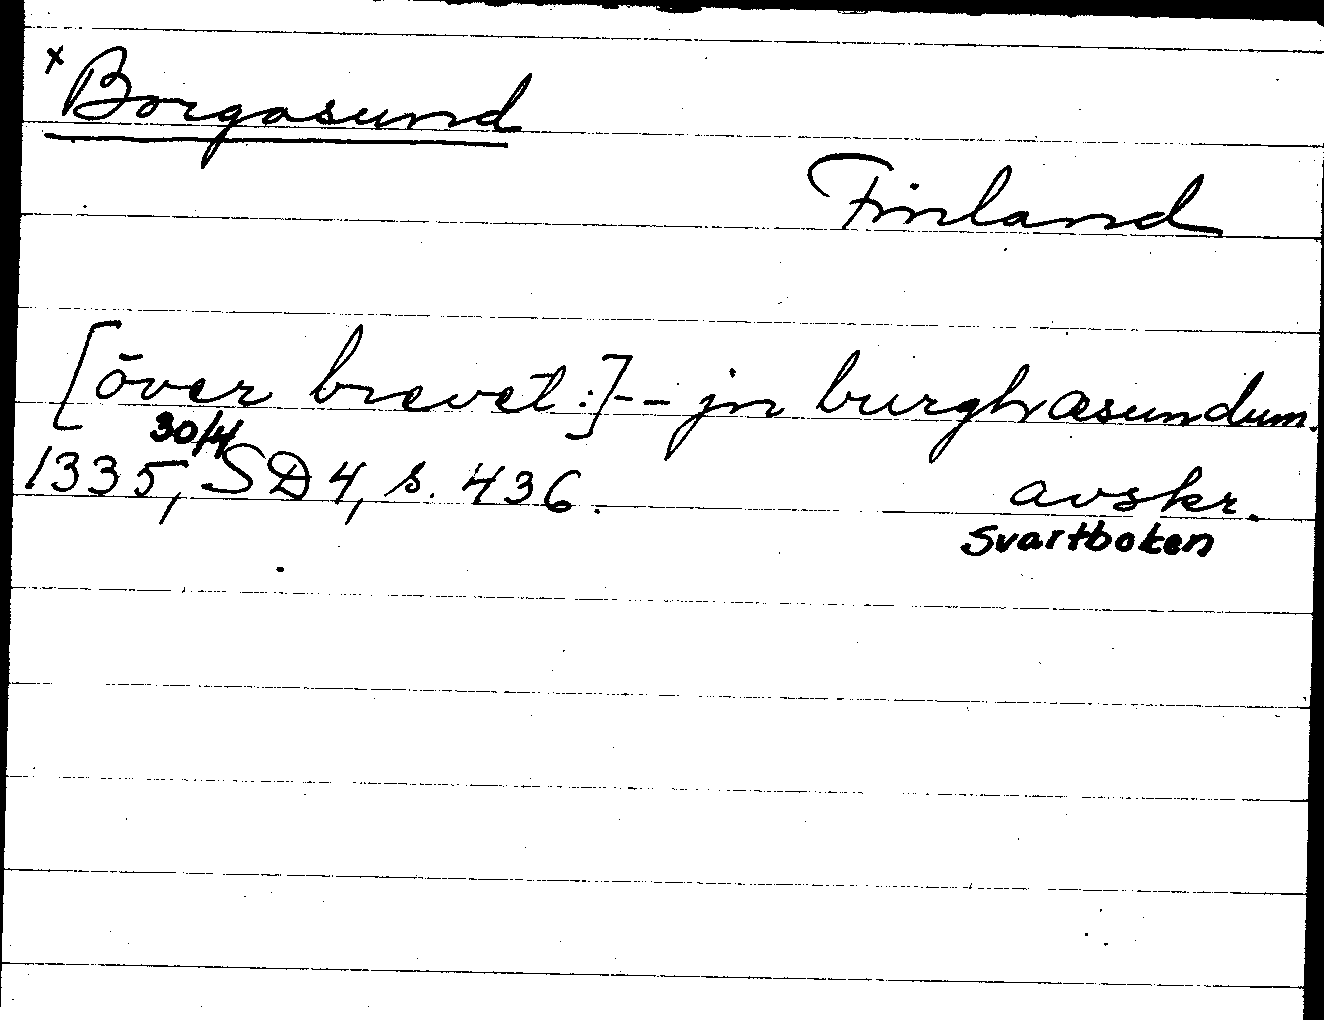 x Borgasund
Finland
[över brevet:]-- jn burghæsundum.
30/4
1335, SD 4, s. 436. avskr.
Svartboken